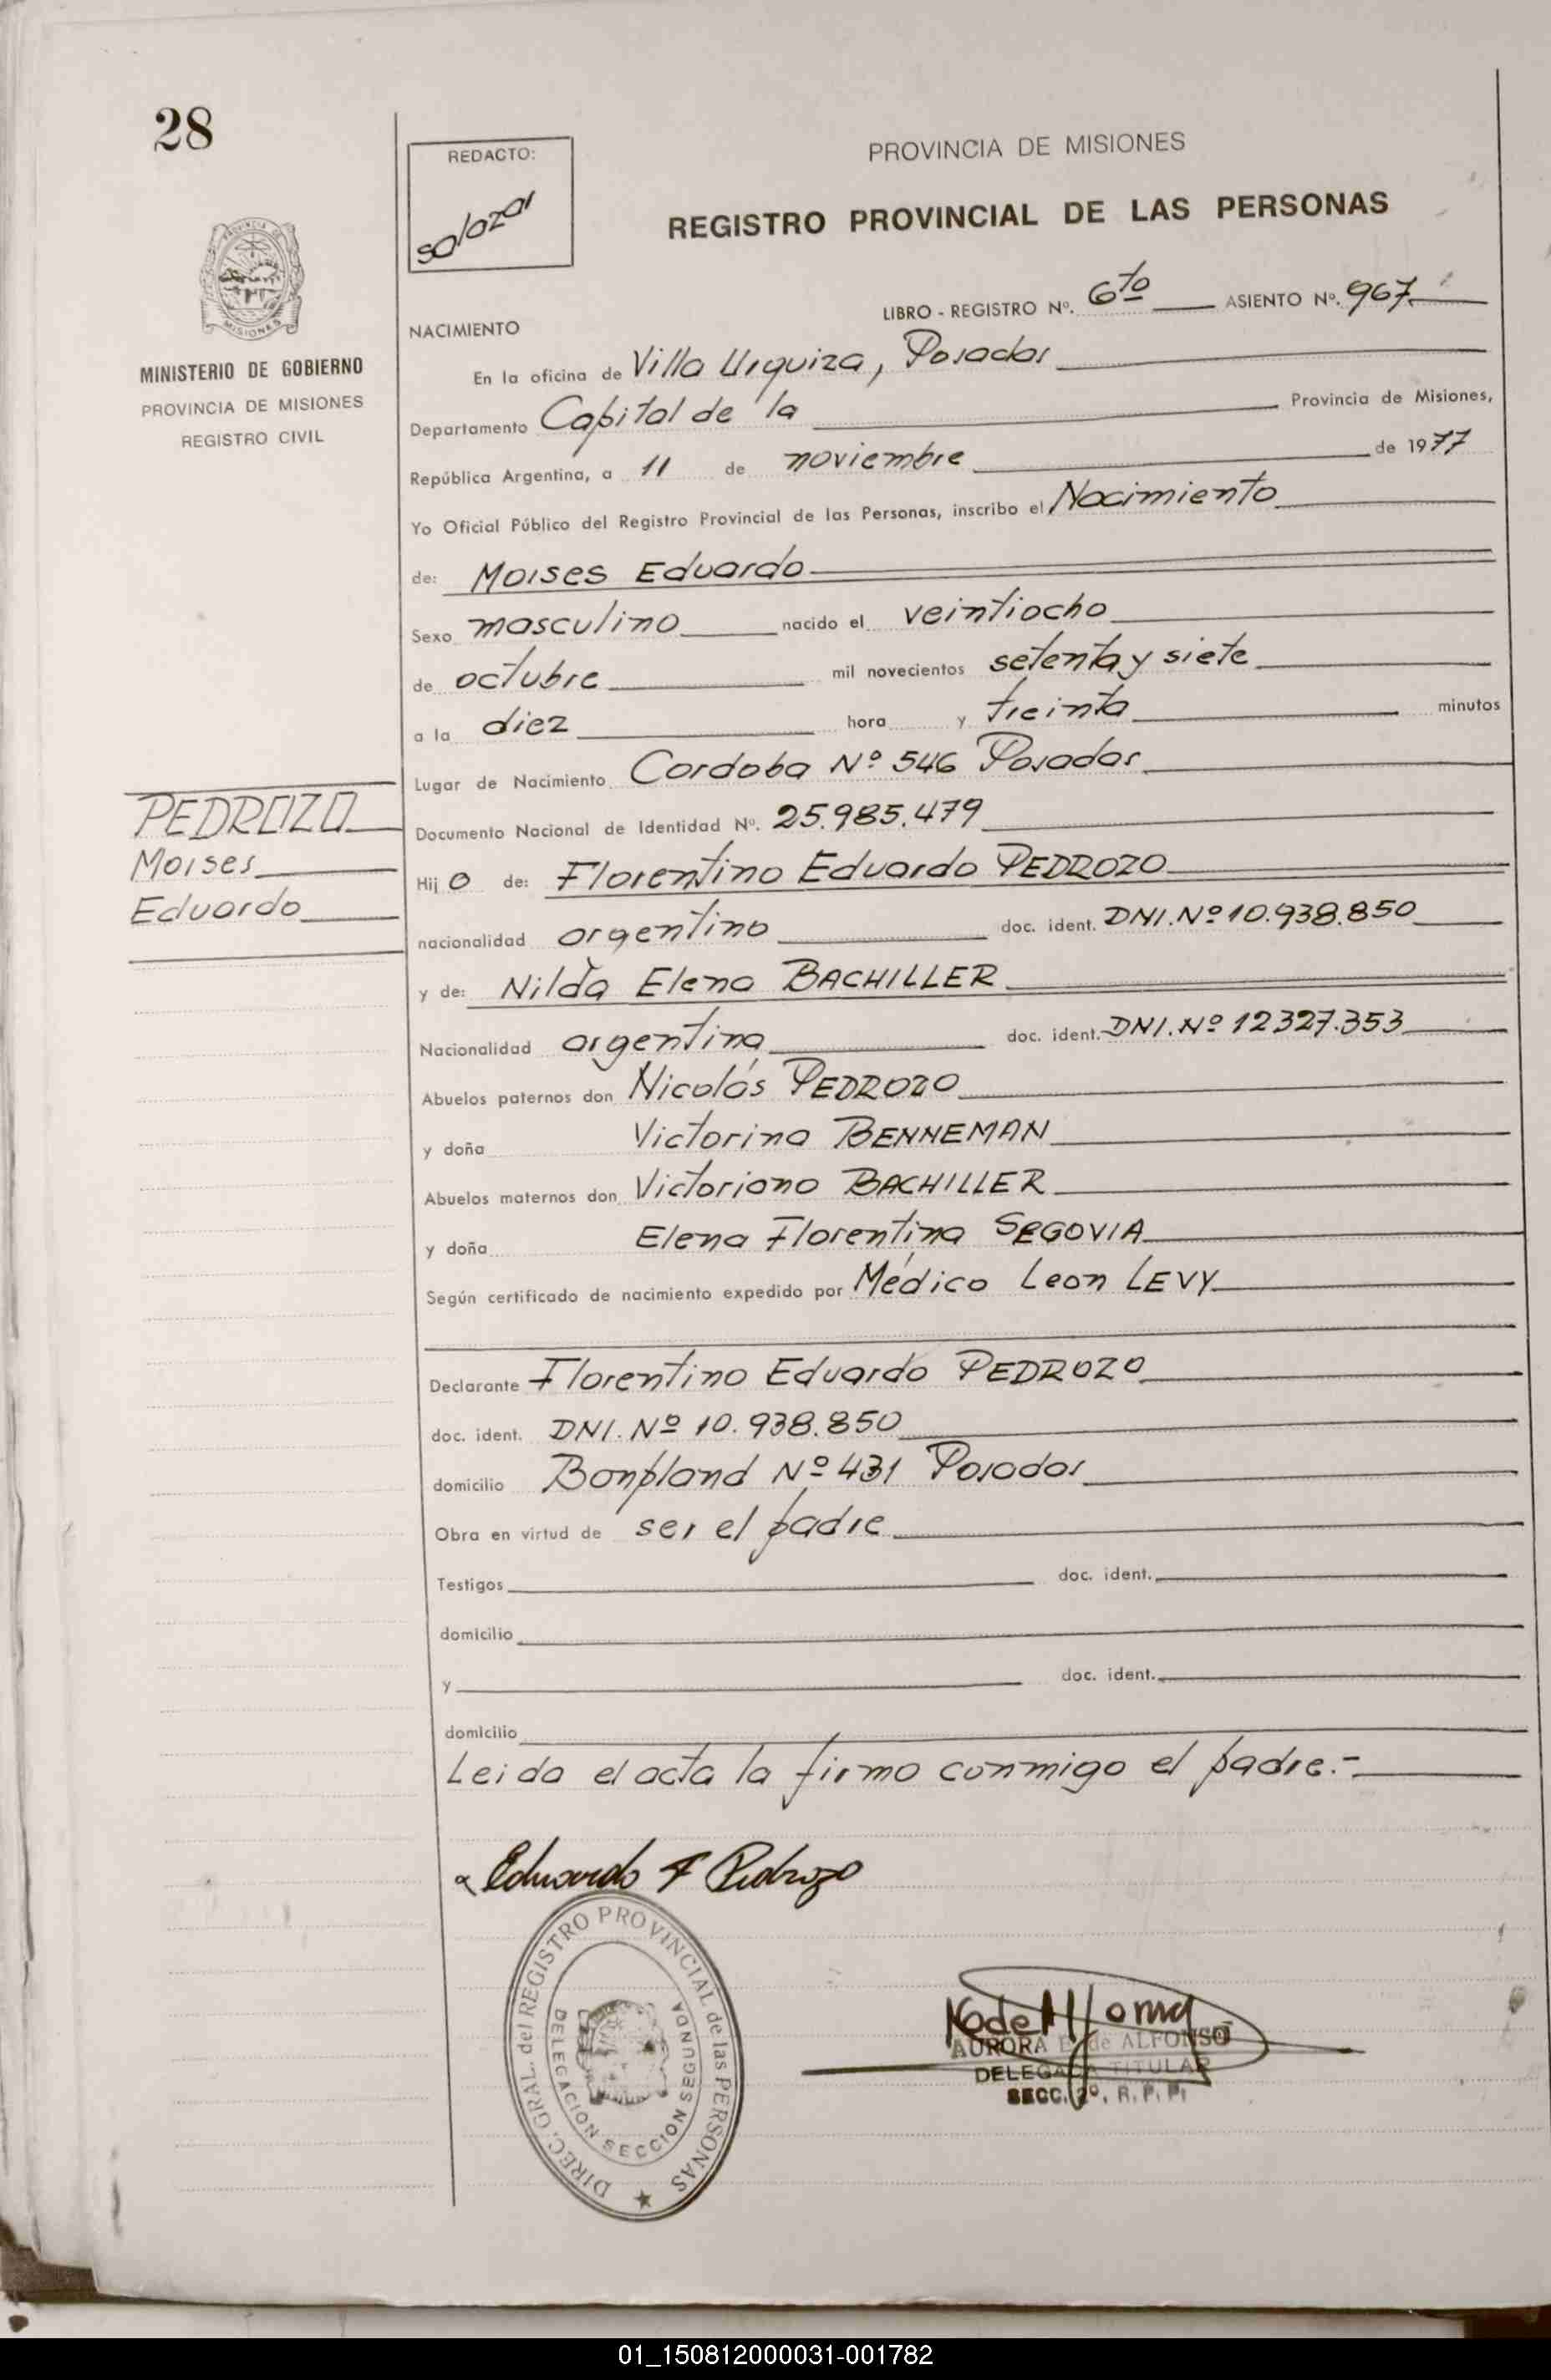 28
REDACTO:
salazar
PROVINCIA DE MISIONES
REGISTRO PROVINCIAL DE LAS PERSONAS
MISIONES
MINISTERIO DE GOBIERNO
PROVINCIA DE MISIONES
REGISTRO CIVIL
LIBRO - REGISTRO Nº. 6to ASIENTO Nº. 967
NACIMIENTO
En la oficina de Villa Urquiza, Posadas
Departamento Capital de la Provincia de Misiones,
República Argentina, a 11 de noviembre de 1977
Yo Oficial Público del Registro Provincial de las Personas, inscribo el Nacimiento
de: Moises Eduardo
Sexo masculino nacido el veintiocho
de octubre mil novecientos setenta y siete
a la diez hora y treinta minutos
Lugar de Nacimiento Cordoba Nº 546 Posadas
PEDROZO
Moises
Eduardo
Documento Nacional de Identidad Nº. 25.985.479
Hij o de: Florentino Eduardo PEDROZO
nacionalidad argentino doc. ident. DNI. Nº 10.938.850
y de: Nilda Elena BACHILLER
Nacionalidad argentina doc. ident. DNI. Nº 12327.353
Abuelos paternos don Nicolás PEDROZO
y doña Victorina BENNEMAN
Abuelos maternos don Victoriano BACHILLER
y doña Elena Florentina SEGOVIA
Según certificado de nacimiento expedido por Médico Leon LEVY
Declarante Florentino Eduardo PEDROZO
doc. ident. DNI. Nº 10.938.850
domicilio Bonpland Nº 431 Posadas
Obra en virtud de ser el padre
Testigos doc. ident.
domicilio
y doc. ident.
domicilio
Leida el acta la firmo conmigo el padre.-
Eduardo F Pedrozo
DIREC. GRAL. del REGISTRO PROVINCIAL de las PERSONAS
DELEGACION SECCION SEGUNDA
AURORA de ALFONSO
DELEGADA TITULAR
SECC. 2º. R. P. P.
01_150812000031-001782